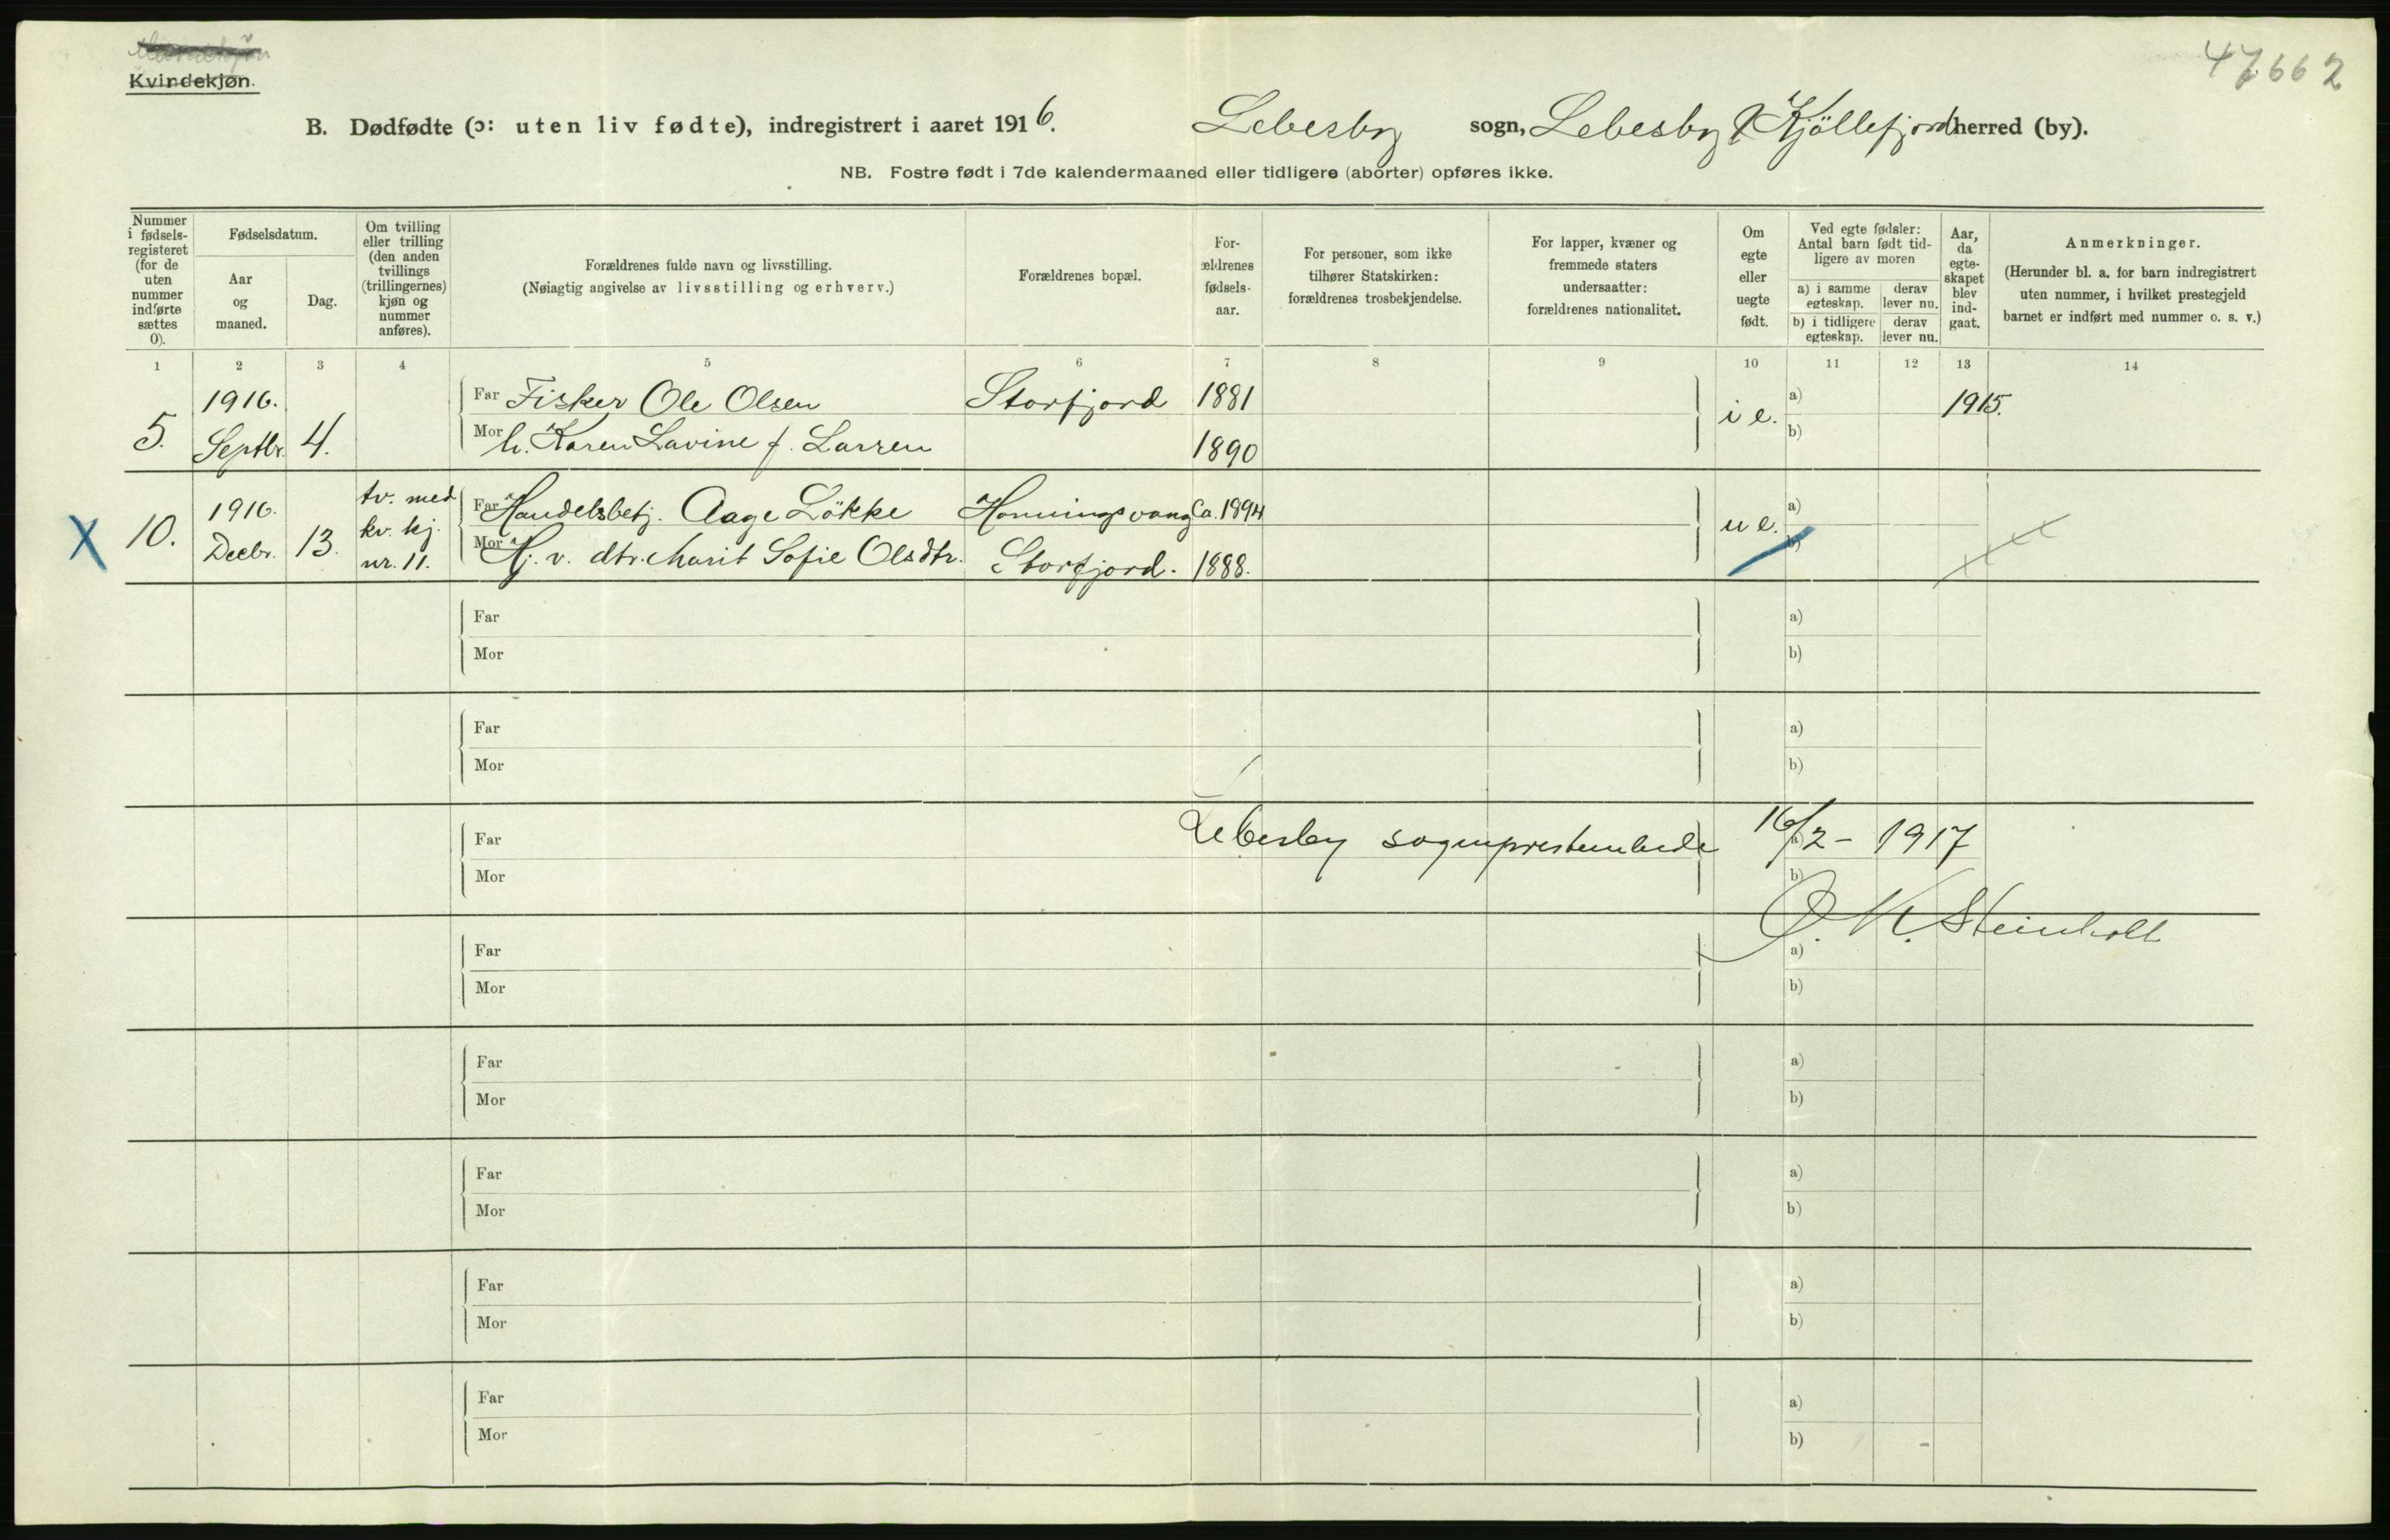 Kvindekjøn.
47662
B. Dødfødte (ɔ: uten liv fødte), indregistrert i aaret 1916. Lebesby sogn, Lebesby & Kjöllefjord herred (by).
NB. Fostre født i 7de kalendermaaned eller tidligere (aborter) opføres ikke.
Nummer i fødsels-registeret (for de uten nummer indførte sættes 0).
Fødselsdatum.
Aar og maaned.
Dag.
Om tvilling eller trilling (den anden tvillings (trillingernes) kjøn og nummer anføres).
Forældrenes fulde navn og livsstilling.
(Nøiagtig angivelse av livsstilling og erhverv.)
Forældrenes bopæl.
For-ældrenes fødsels-aar.
For personer, som ikke tilhører Statskirken: forældrenes trosbekjendelse.
For lapper, kvæner og fremmede staters undersaatter: forældrenes nationalitet.
Om egte eller uegte født.
Ved egte fødsler: Antal barn født tid-ligere av moren
a) i samme egteskap.
derav lever nu.
b) i tidligere egteskap.
derav lever nu.
Aar, da egte-skapet blev ind-gaat.
Anmerkninger.
(Herunder bl. a. for barn indregistrert uten nummer, i hvilket prestegjeld barnet er indført med nummer o. s. v.)
1 2 3 4 5 6 7 8 9 10 11 12 13 14
1916. Far Fisker Ole Olsen Storfjord 1881 i e. a) 1915.
5. Septbr. 4. Mor h. Karen Lavine f. Larsen 1890 b)
X 10. 1916. Decbr. 13. tv. med kv. kj. nr. 11.
Far Handelsbetj. Aage Lökke Honningsvang Ca. 1894 u e. a)
Mor Hj. v. dtr. Marit Sofie Olsdtr. Storfjord. 1888. b)
Far a)
Mor b)
Far a)
Mor b)
Far Lebesby sogneprestembede 16/2 - 1917 a)
Mor b)
O. M. Steinholt
Far a)
Mor b)
Far a)
Mor b)
Far a)
Mor b)
Far a)
Mor b)
Far a)
Mor b)